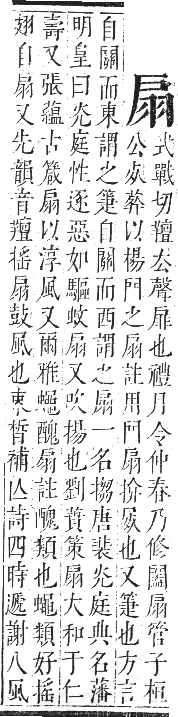 扇式戰切羶去聲扉也禮月令仲春乃修闔扇管子桓
公死葬以楊門之扇註用門扇掩屍也又箑也方言
自關而東謂之箑自關而西謂之扇一名搊唐裴灮庭典名藩
明皇曰灮庭性逐惡如驅蚊扇又吹揚也劉蕡策扇大和于仁
壽又張蘊古箴扇以淳風又爾雅蠅醜扇註醜類也蠅類好搖
翅自扇又先韻音羶搖扇鼓風也束皙補亾詩四時遞謝八風